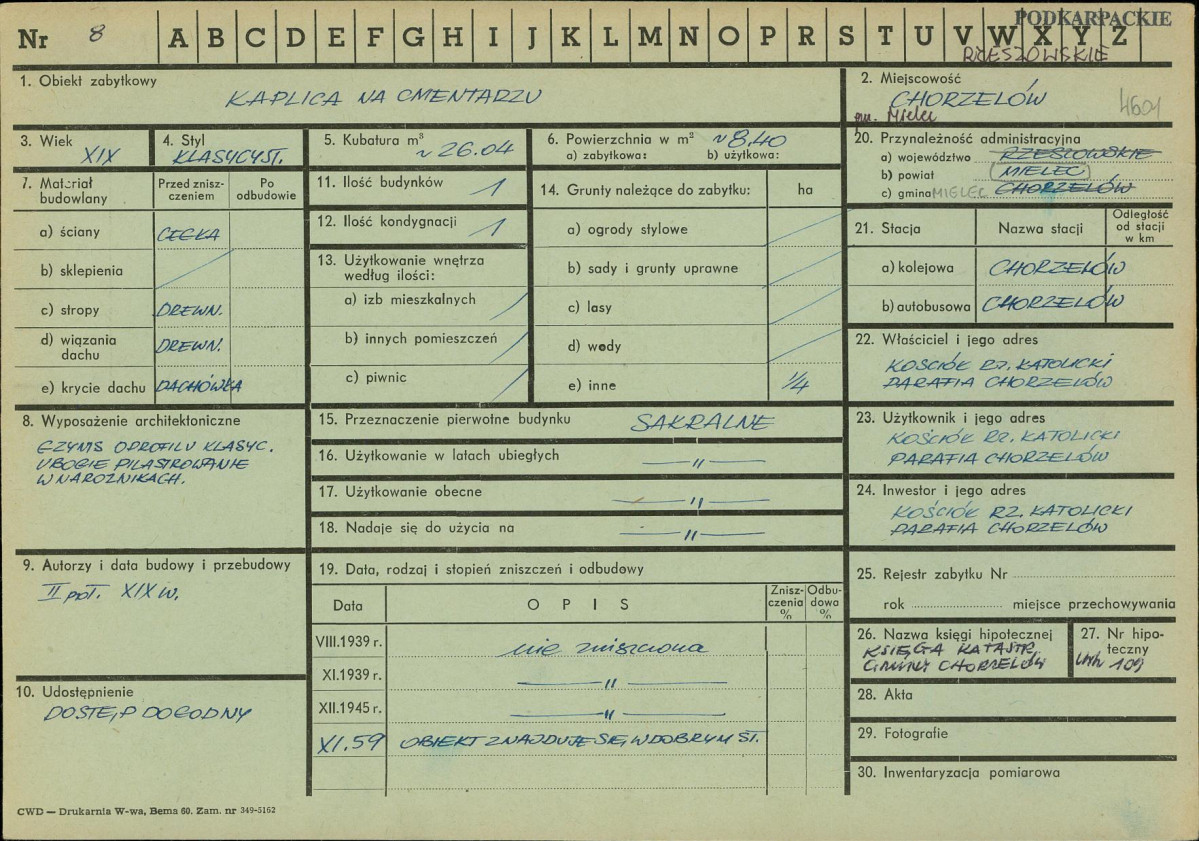 PODKARPACKIE
Nr 8 A B C D E F G H I J K L M N O P R S T U V W X Y Z
RZESZOWSKIE
1. Obiekt zabytkowy
KAPLICA NA CMENTARZU
2. Miejscowość
CHORZELÓW
gm. Mielec
4601
3. Wiek
XIX
4. Styl
KLASYCYST.
5. Kubatura m³
~ 26.04
6. Powierzchnia w m² ~8,40
a) zabytkowa: b) użytkowa:
20. Przynależność administracyjna
a) województwo RZESZOWSKIE
b) powiat MIELEC
c) gmina MIELEC CHORZELÓW
7. Materiał budowlany
Przed zniszczeniem
Po odbudowie
a) ściany CEGŁA
b) sklepienia
c) stropy DREWN.
d) wiązania dachu DREWN.
e) krycie dachu DACHÓWKA
11. Ilość budynków 1
12. Ilość kondygnacji 1
13. Użytkowanie wnętrza
według ilości:
a) izb mieszkalnych
b) innych pomieszczeń
c) piwnic
14. Grunty należące do zabytku: ha
a) ogrody stylowe
b) sady i grunty uprawne
c) lasy
d) wody
e) inne 1/4
21. Stacja
Nazwa stacji
Odległość
od stacji
w km
a) kolejowa CHORZELÓW
b) autobusowa CHORZELÓW
22. Właściciel i jego adres
KOŚCIÓŁ RZ. KATOLICKI
PARAFIA CHORZELÓW
8. Wyposażenie architektoniczne
GZYMS O PROFILU KLASYC.
UBOGIE PILASTROWANIE
W NAROZNIKACH.
15. Przeznaczenie pierwotne budynku SAKRALNE
16. Użytkowanie w latach ubiegłych —"—
17. Użytkowanie obecne —"—
18. Nadaje się do użycia na —"—
23. Użytkownik i jego adres
KOŚCIÓŁ RZ. KATOLICKI
PARAFIA CHORZELÓW
24. Inwestor i jego adres
KOŚCIÓŁ RZ. KATOLICKI
PARAFIA CHORZELÓW
9. Autorzy i data budowy i przebudowy
II poł. XIX w.
10. Udostępnienie
DOSTĘP DOGODNY
19. Data, rodzaj i stopień zniszczeń i odbudowy
Data
OPIS
Zniszczenia %
Odbudowa %
VIII.1939 r. nie zniszczona
XI.1939 r. —"—
XII.1945 r. —"—
XI.59 OBIEKT ZNAJDUJE SIĘ W DOBRYM ST.
25. Rejestr zabytku Nr
rok miejsce przechowywania
26. Nazwa księgi hipotecznej
KSIĘGA KATASTR.
GMINY CHORZELÓW
27. Nr hipoteczny
Lwh 109
28. Akta
29. Fotografie
30. Inwentaryzacja pomiarowa
CWD — Drukarnia W-wa, Bema 60. Zam. nr 349-5162